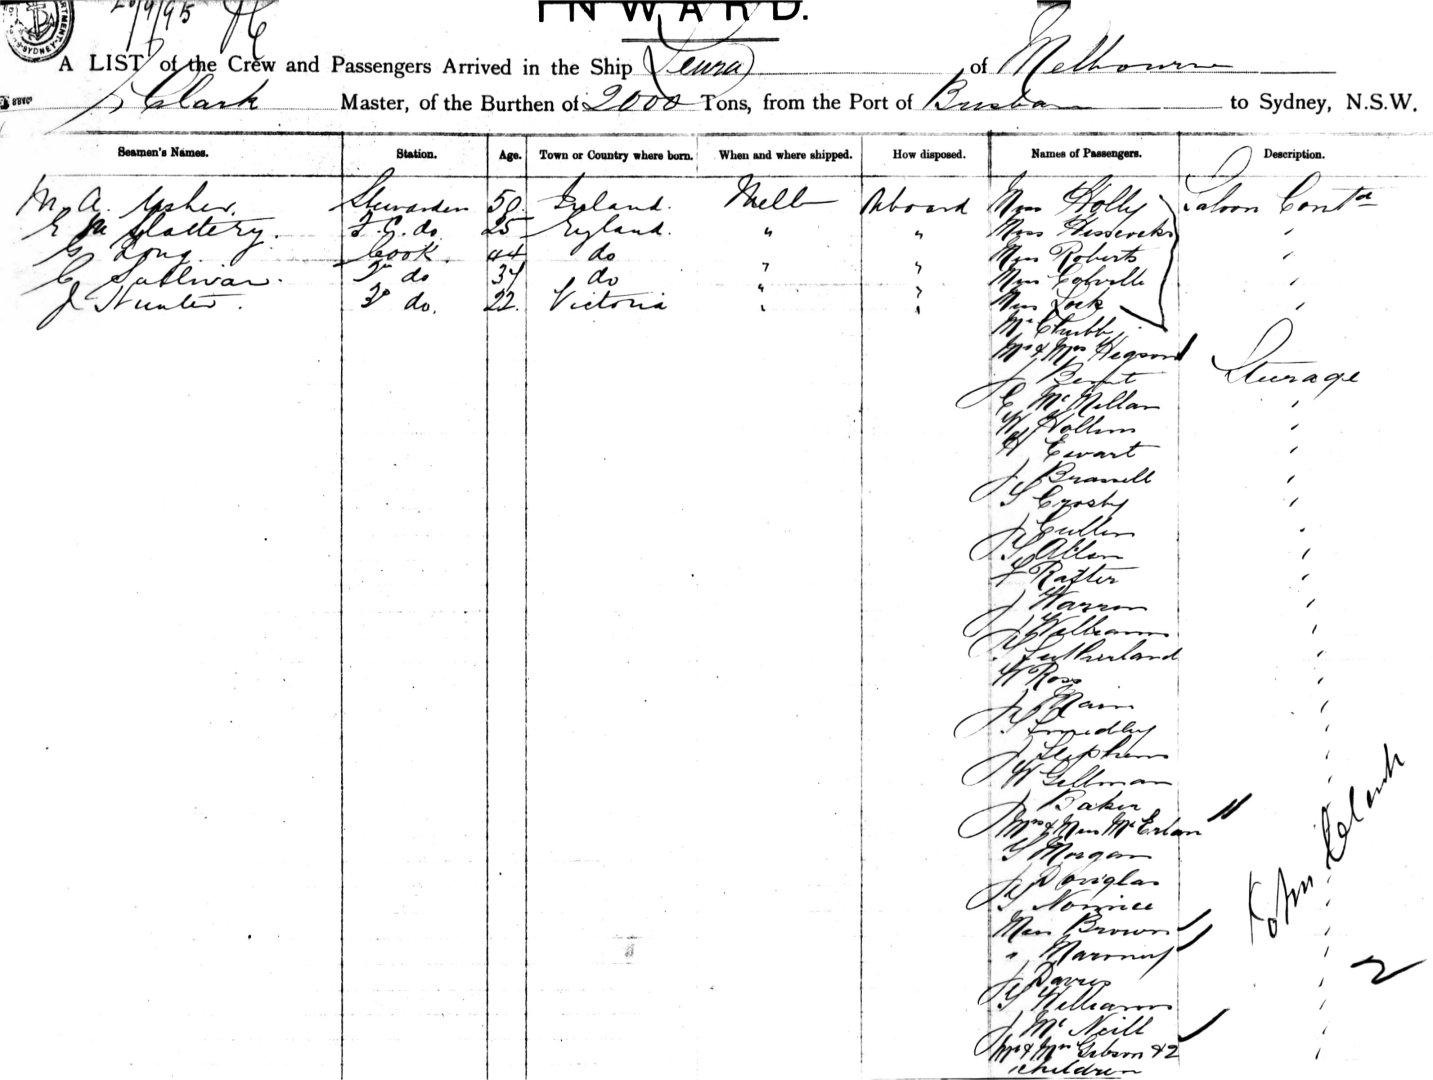 20/9/95
INWARD.
A LIST of the Crew and Passengers Arrived in the Ship Leura of Melbourne
J Clark Master, of the Burthen of 2000 Tons, from the Port of Brisbane to Sydney, N.S.W.
Seamen's Names. Station. Age. Town or Country where born. When and where shipped. How disposed. Names of Passengers. Description.
M. A. Usher. Stewardess 50 Ireland. Melb Aboard Miss Holly Saloon Contd
E M Slattery. F.C. do 25 England. " " Miss "
G Long Cook. 44 do " " Miss Roberts "
C Sullivan. 2nd do 37 do " " Miss Colville "
J Hunter. 3rd do. 22. Victoria " " Miss Lock "
Mr Chubb
Mr & Mrs Hegson
J Bent Steerage
E McMillan "
W Hollins "
H Ewart "
J Bramell "
S Crosby "
J Cullen "
S Allen "
F Rafter "
J Warren "
J Williams "
S Sutherland "
W Ross "
J Main "
S Smedley "
J Stephens "
W Gellman "
J Baker
Mrs & Miss McErlan "
S Morgan "
J Douglas "
S "
Miss Brown "
" Maroney "
J Davies "
S Williams "
J McNeill "
Mr & Mrs Gibson & 2 "
children
John Clark
2